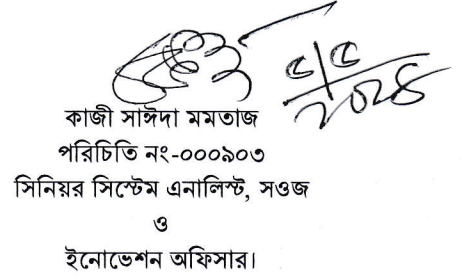 ৫/৫
২০২৪
কাজী সাঈদা মমতাজ
পরিচিতি নং-০০০৯০৩
সিনিয়র সিস্টেম এনালিস্ট, সওজ
ও
ইনোভেশন অফিসার।